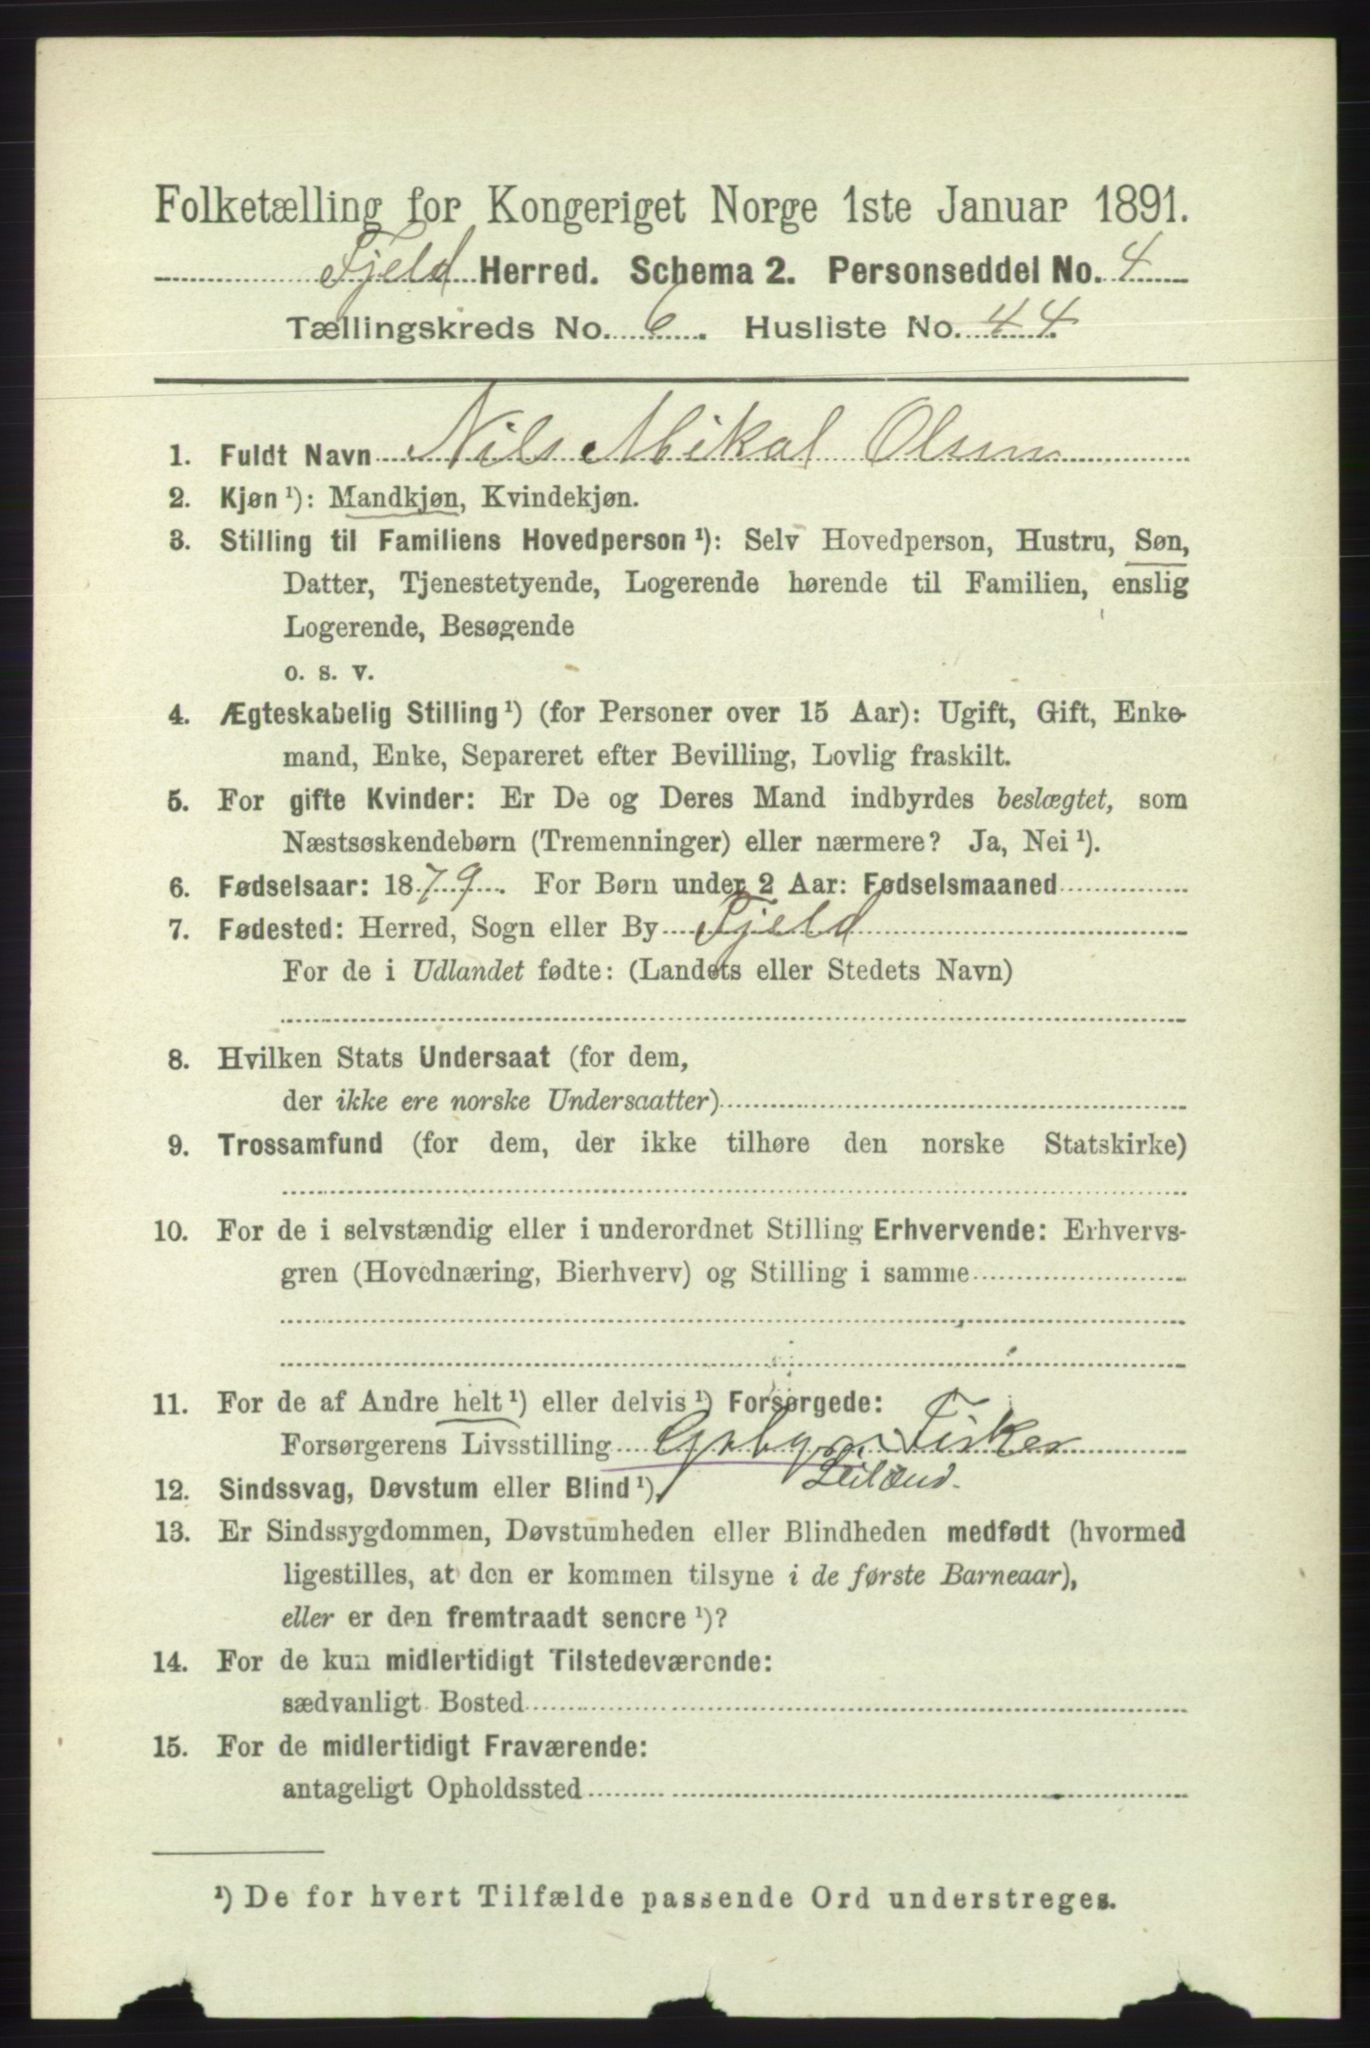 Folketælling for Kongeriget Norge 1ste Januar 1891.
Fjeld Herred. Schema 2. Personseddel No. 4
Tællingskreds No. 6. Husliste No. 44.
1. Fuldt Navn Nils Mikal Olsen
2. Kjøn ¹): Mandkjøn, Kvindekjøn.
3. Stilling til Familiens Hovedperson ¹): Selv Hovedperson, Hustru, Søn,
Datter, Tjenestetyende, Logerende hørende til Familien, enslig
Logerende, Besøgende
o. s. v.
4. Ægteskabelig Stilling ¹) (for Personer over 15 Aar): Ugift, Gift, Enke-
mand, Enke, Separeret efter Bevilling, Lovlig fraskilt.
5. For gifte Kvinder: Er De og Deres Mand indbyrdes beslægtet, som
Næstsøskendebørn (Tremenninger) eller nærmere? Ja, Nei ¹).
6. Fødselsaar: 1879. For Børn under 2 Aar: Fødselsmaaned
7. Fødested: Herred, Sogn eller By Fjeld
For de i Udlandet fødte: (Landets eller Stedets Navn)
8. Hvilken Stats Undersaat (for dem,
der ikke ere norske Undersaatter)
9. Trossamfund (for dem, der ikke tilhøre den norske Statskirke)
10. For de i selvstændig eller i underordnet Stilling Erhvervende: Erhvervs-
gren (Hovednæring, Bierhverv) og Stilling i samme
11. For de af Andre helt ¹) eller delvis ¹) Forsørgede:
Forsørgerens Livsstilling Gbr. Fisker
Leilænd.
12. Sindssvag, Døvstum eller Blind ¹).
13. Er Sindssygdommen, Døvstumheden eller Blindheden medfødt (hvormed
ligestilles, at den er kommen tilsyne i de første Barneaar),
eller er den fremtraadt senere ¹)?
14. For de kun midlertidigt Tilstedeværende:
sædvanligt Bosted
15. For de midlertidigt Fraværende:
antageligt Opholdssted
¹) De for hvert Tilfælde passende Ord understreges.